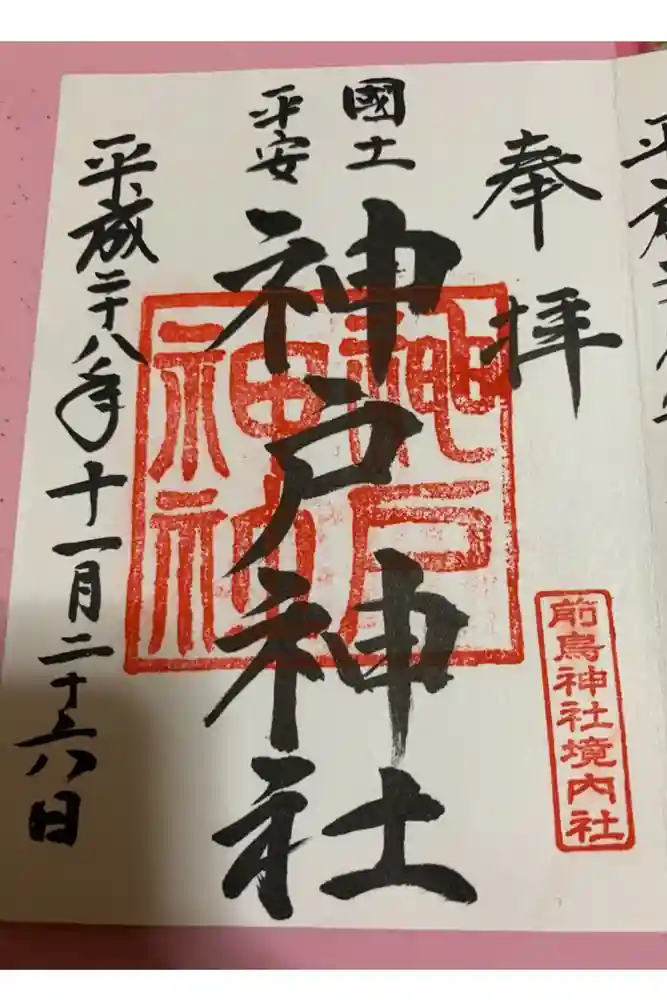 奉拝
國土
平安
神戸神社
平成二十八年十一月二十六日
神戸
神社
前鳥神社境内社
平成二